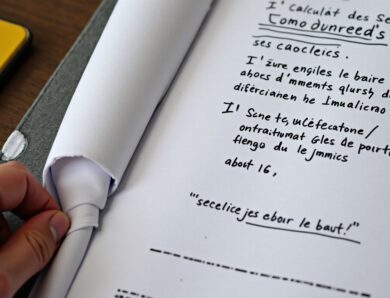 I' Calculát des Se
Como dunreed's
ses caocleics.
I' zure engiles le baire
ahocs d'mments qlursh d
difércianen he Imualicrao
I' Scne tç, wléfecatone/
ontraitumat Gles de pourt,
flengo du le jmmics
about 16,
"'secelice jes eboir le baut!"